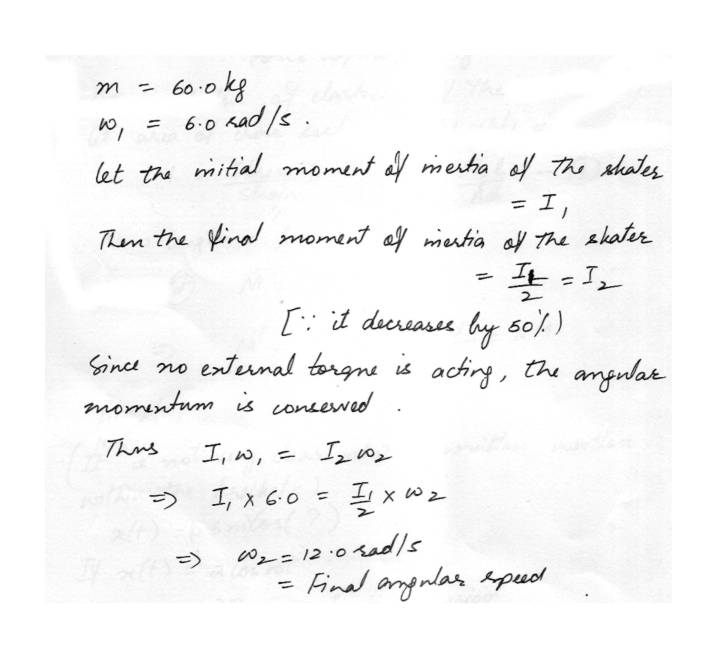 m = 60.0 kg
ω₁ = 6.0 rad/s.
let the initial moment of inertia of the skater
= I₁
Then the final moment of inertia of the skater
= I₁/2 = I₂
[∵ it decreases by 50%)
Since no external torque is acting, the angular
momentum is conserved .
Thus I₁ω₁ = I₂ω₂
⇒ I₁ × 6.0 = I₁/2 × ω₂
⇒ ω₂ = 12.0 rad/s
= Final angular speed .